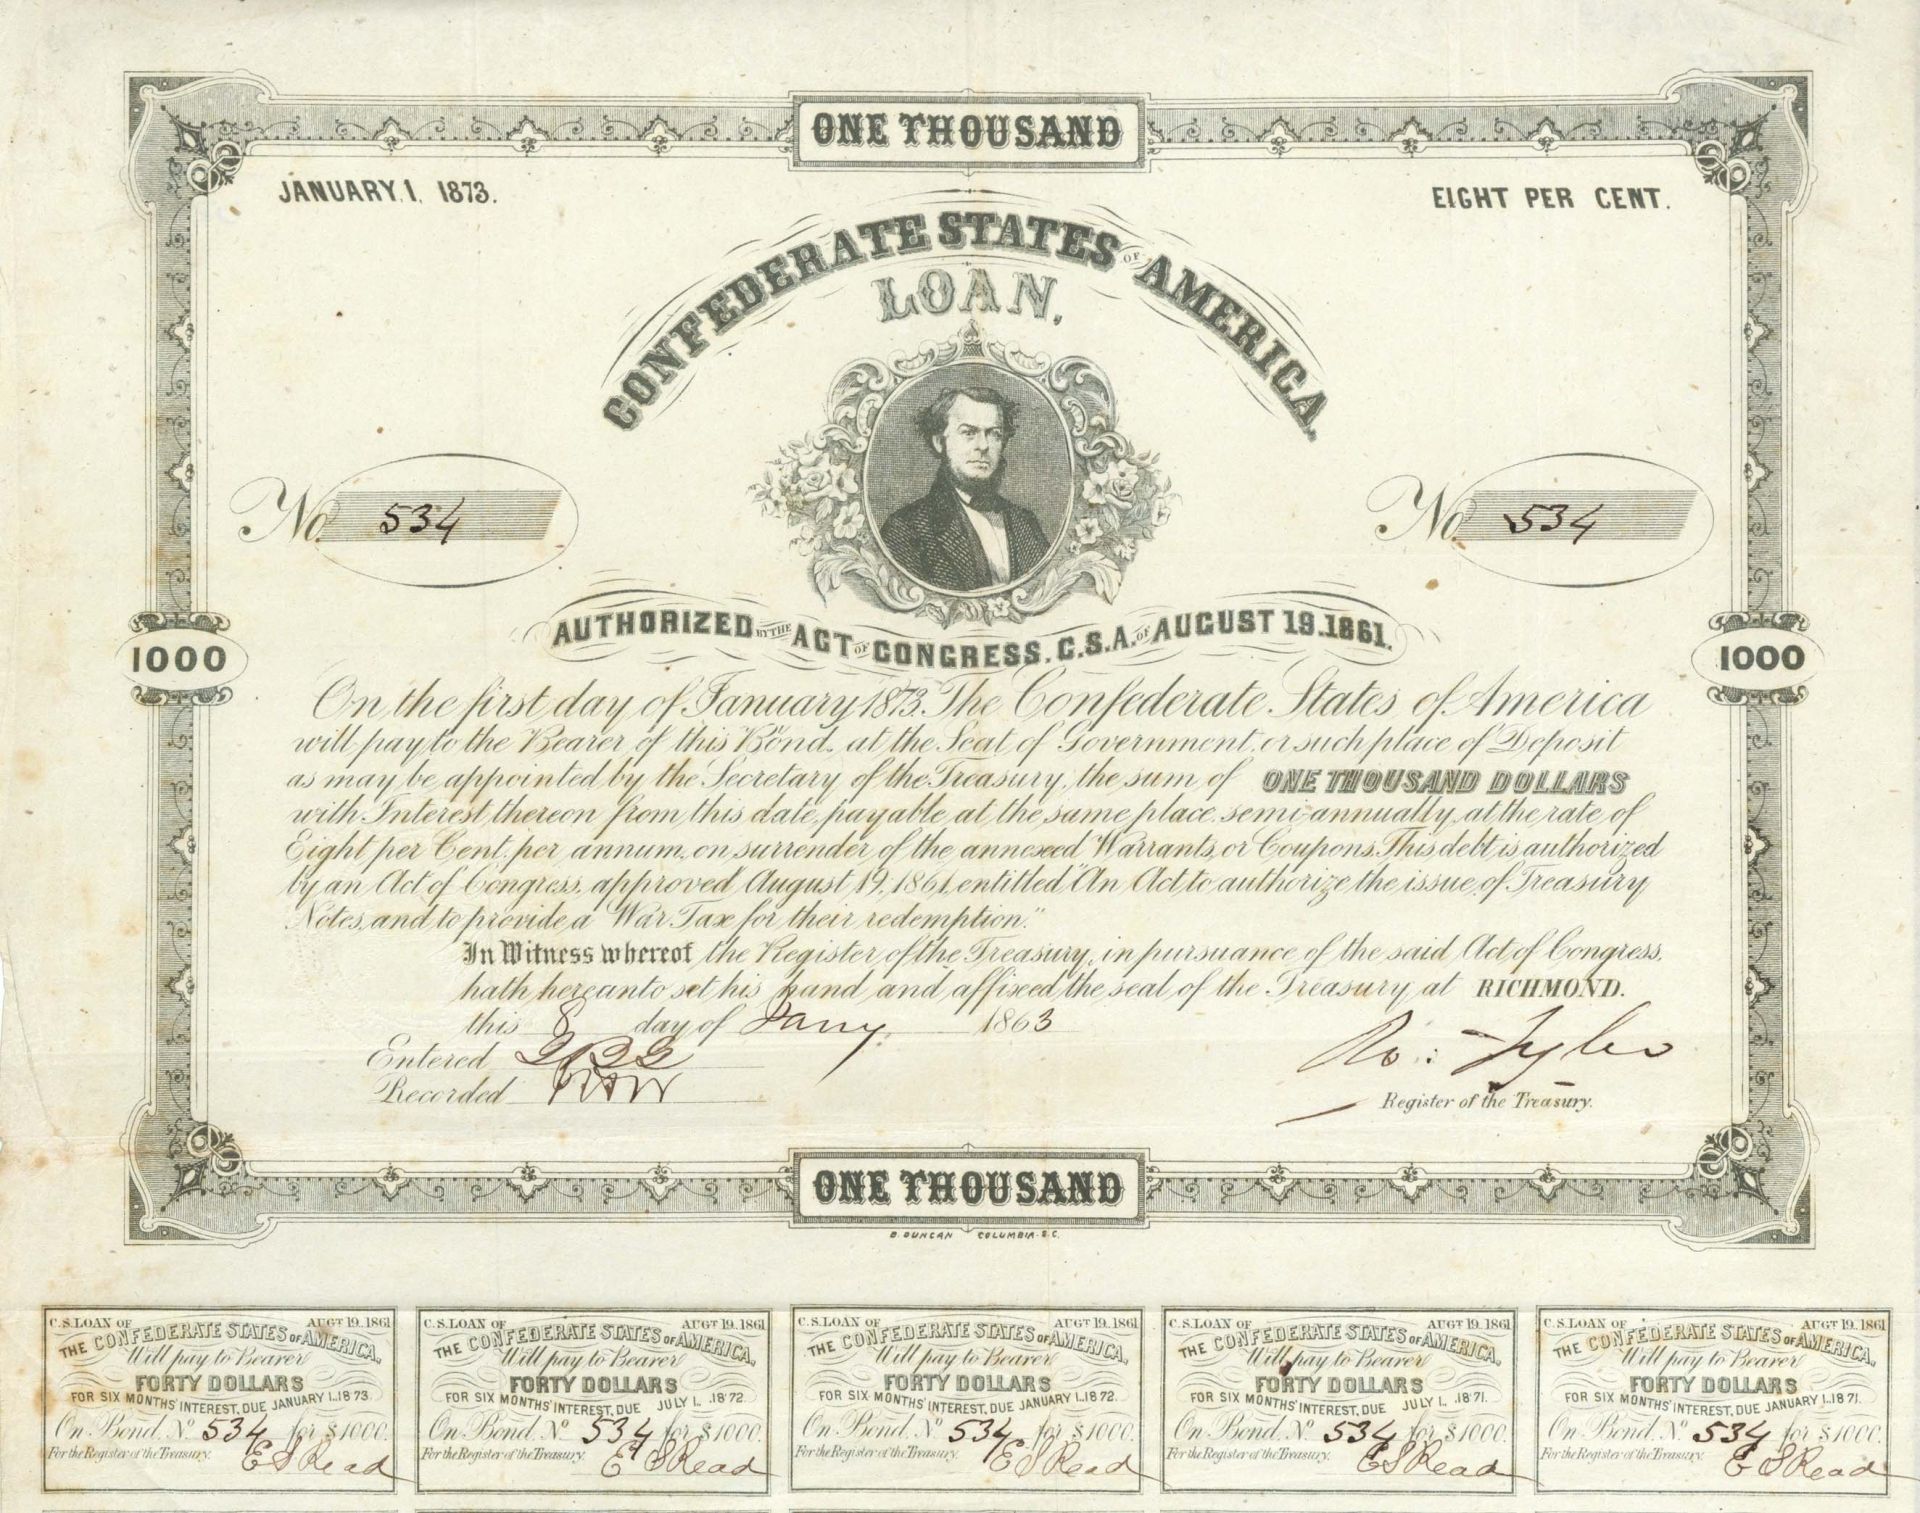 ONE THOUSAND
JANUARY. 1. 1873.
EIGHT PER CENT.
CONFEDERATE STATES OF AMERICA.
LOAN,
No. 534
No. 534
AUTHORIZED BY THE ACT OF CONGRESS. C.S.A. OF AUGUST 19. 1861.
1000
1000
On the first day of January 1873. The Confederate States of America
will pay to the Bearer of this Bond, at the Seat of Government, or such place of Deposit
as may be appointed by the Secretary of the Treasury, the sum of ONE THOUSAND DOLLARS
with Interest thereon from this date, payable at the same place, semi-annually, at the rate of
Eight per Cent, per annum, on surrender of the annexed Warrants, or Coupons. This debt is authorized
by an Act of Congress, approved August 19, 1861, entitled "An Act to authorize the issue of Treasury
Notes, and to provide a War Tax for their redemption."
In Witness whereof the Register of the Treasury, in pursuance of the said Act of Congress,
hath hereunto set his hand and affixed the seal of the Treasury at RICHMOND.
this 8 day of Jany 1863
Entered
Recorded
Ro: Tyler
Register of the Treasury.
ONE THOUSAND
B. DUNCAN COLUMBIA. S.C.
C.S. LOAN OF AUGT 19. 1861
THE CONFEDERATE STATES OF AMERICA.
Will pay to Bearer
FORTY DOLLARS
FOR SIX MONTHS' INTEREST, DUE JANUARY 1.. 1873.
On Bond. No 534 for $1000.
For the Register of the Treasury. E S Read
C.S. LOAN OF AUGT 19. 1861
THE CONFEDERATE STATES OF AMERICA.
Will pay to Bearer
FORTY DOLLARS
FOR SIX MONTHS' INTEREST, DUE JULY 1.. 1872.
On Bond. No 534 for $1000.
For the Register of the Treasury. E S Read
C.S. LOAN OF AUGT 19. 1861
THE CONFEDERATE STATES OF AMERICA.
Will pay to Bearer
FORTY DOLLARS
FOR SIX MONTHS' INTEREST, DUE JANUARY 1.. 1872.
On Bond. No 534 for $1000.
For the Register of the Treasury. E S Read
C.S. LOAN OF AUGT 19. 1861
THE CONFEDERATE STATES OF AMERICA.
Will pay to Bearer
FORTY DOLLARS
FOR SIX MONTHS' INTEREST, DUE JULY 1.. 1871.
On Bond. No 534 for $1000.
For the Register of the Treasury. E S Read
C.S. LOAN OF AUGT 19. 1861
THE CONFEDERATE STATES OF AMERICA.
Will pay to Bearer
FORTY DOLLARS
FOR SIX MONTHS' INTEREST, DUE JANUARY 1.. 1871.
On Bond. No 534 for $1000.
For the Register of the Treasury. E S Read